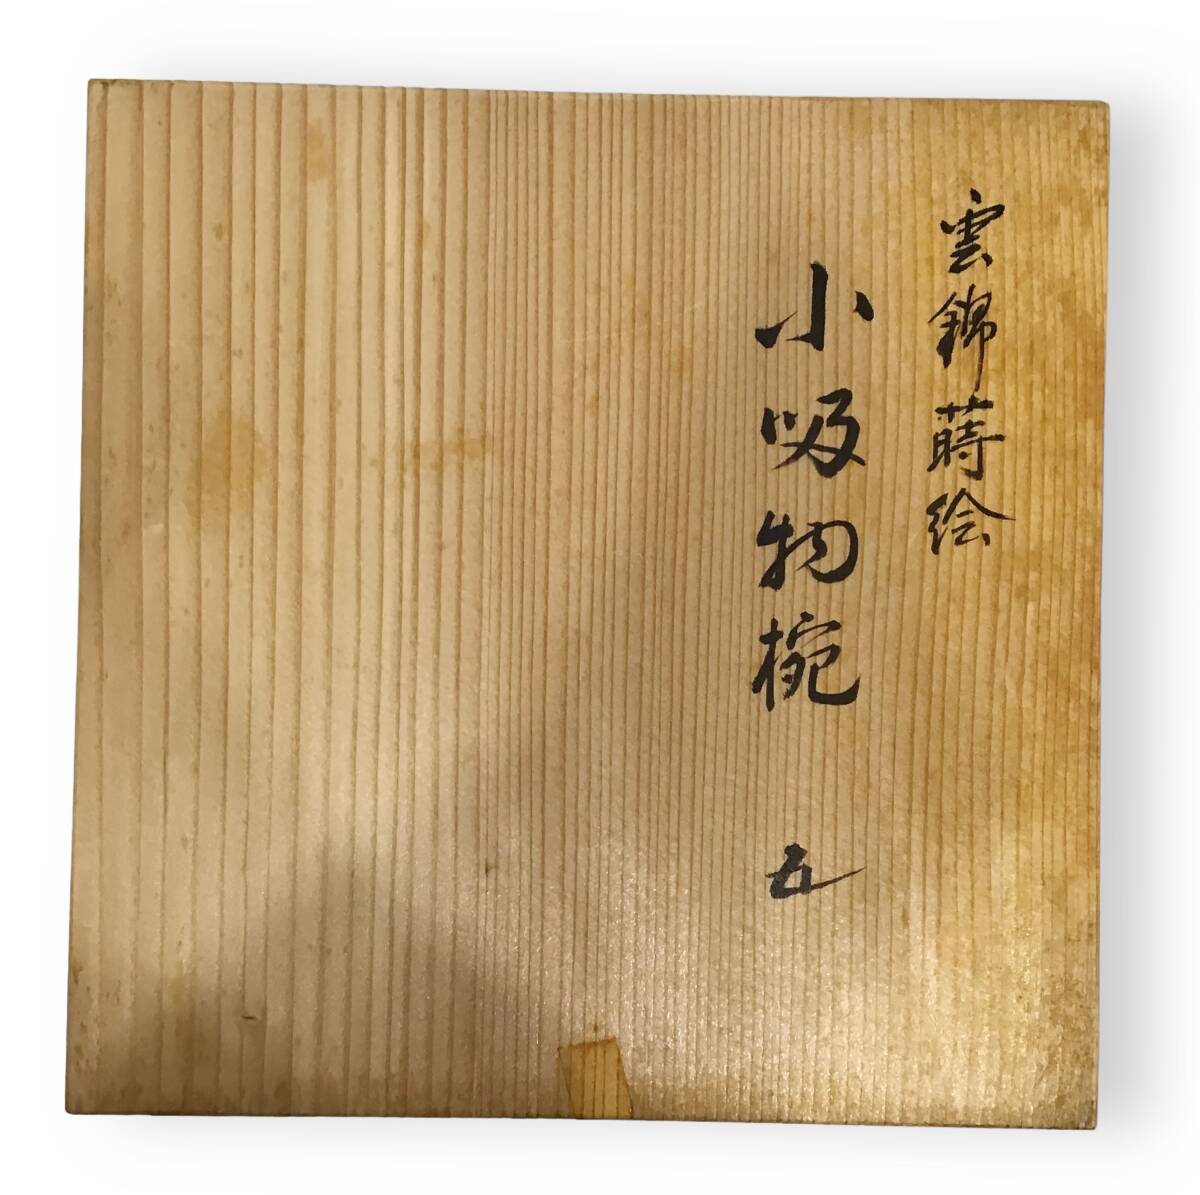 雲錦蒔絵
小吸物椀 五